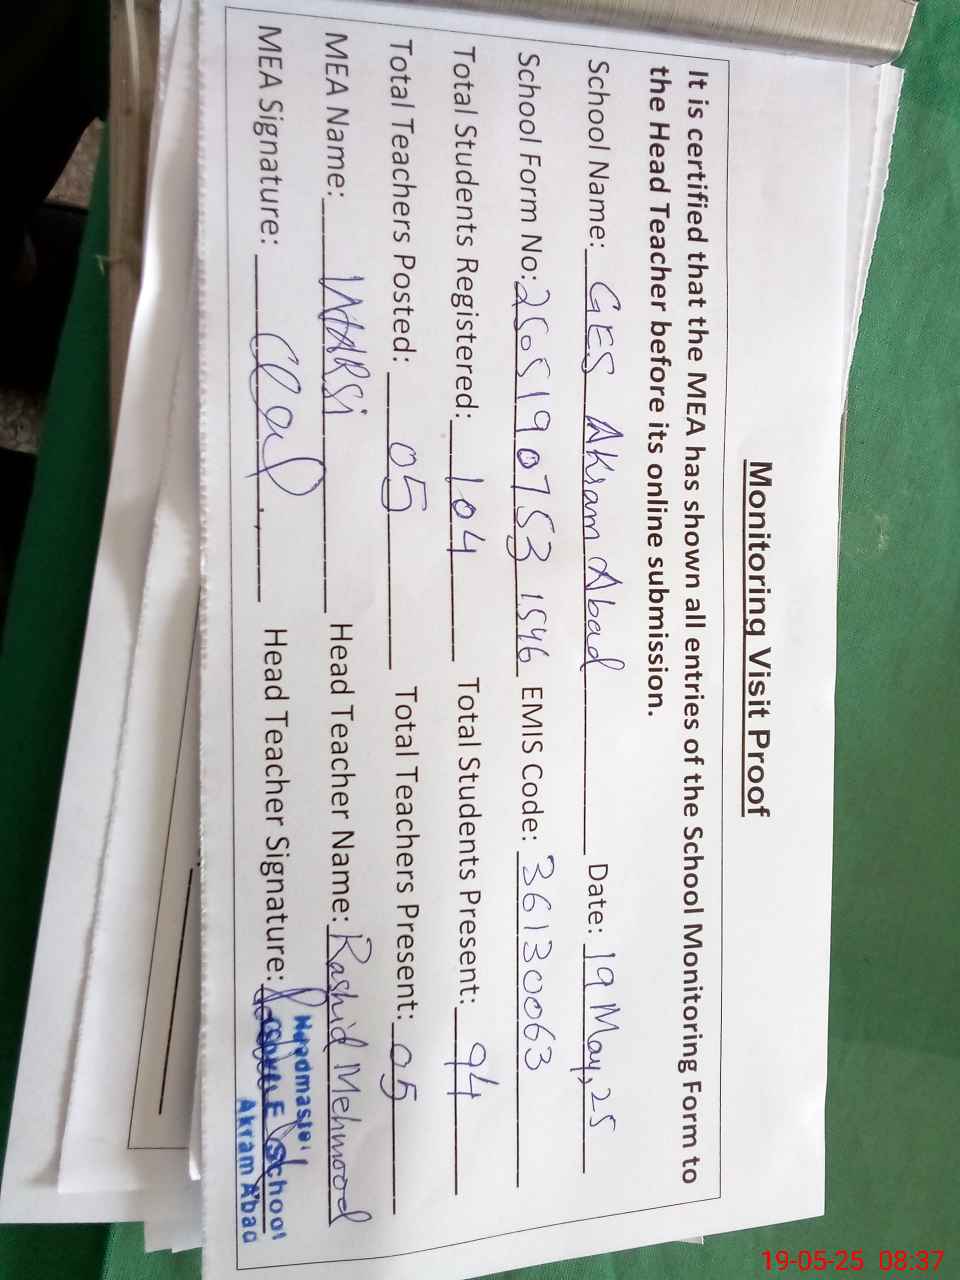 Monitoring Visit Proof
It is certified that the MEA has shown all entries of the School Monitoring Form to
the Head Teacher before its online submission.
School Name: GES Akram Abad Date: 19 May, 25
School Form No: 2505190753 1546 EMIS Code: 36130063
Total Students Registered: 104 Total Students Present: 94
Total Teachers Posted: 05 Total Teachers Present: 05
MEA Name: WARSI Head Teacher Name: Rashid Mehmood
MEA Signature: Head Teacher Signature:
Headmaster
Govt. E School
Akram Abad
19-05-25 08:37